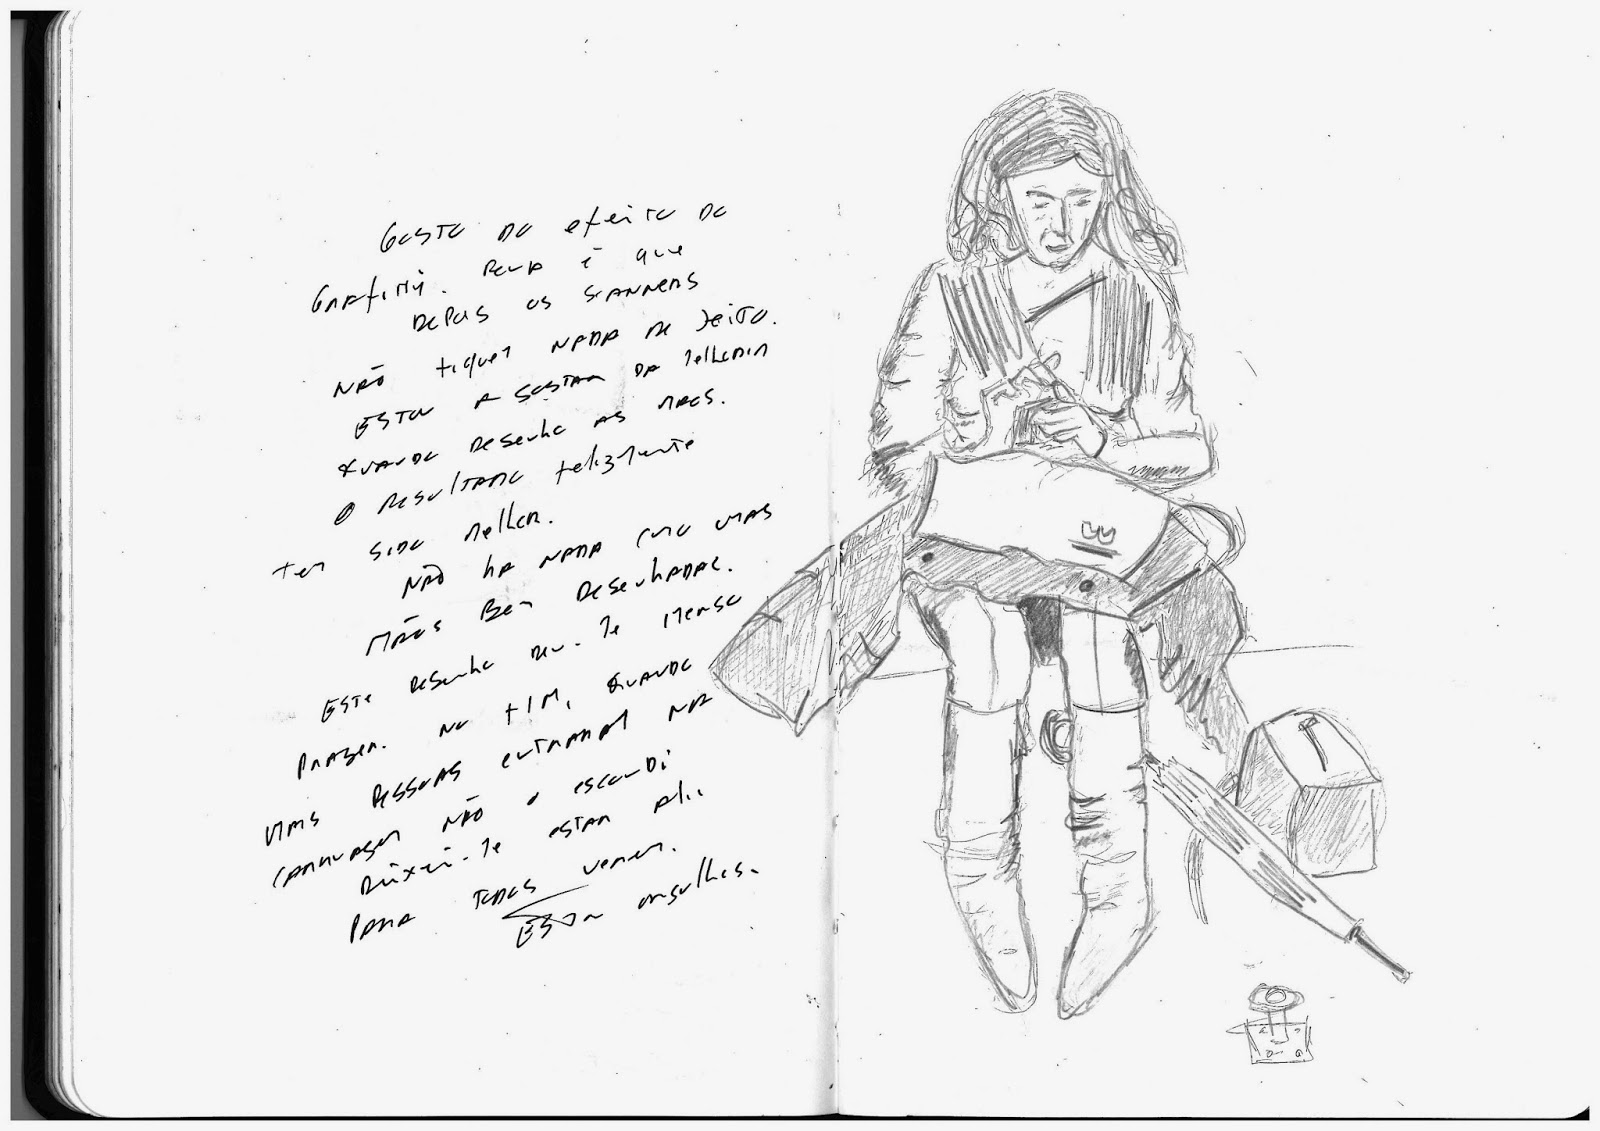 Gosto do efeito da
Grafite. Pena é que
depois os scanners
não fiquem nada de jeito.
Estou a gostar da melhoria
quando desenho as mãos.
O resultado felizmente
tem sido melhor.
Não ha nada como umas
mãos bem desenhadas.
Este desenho deu-me imenso
prazer. No fim, quando
umas pessoas entraram na
carruagem não o escondi
deixei-me estar ali
para todos verem.
Estou orgulhoso.